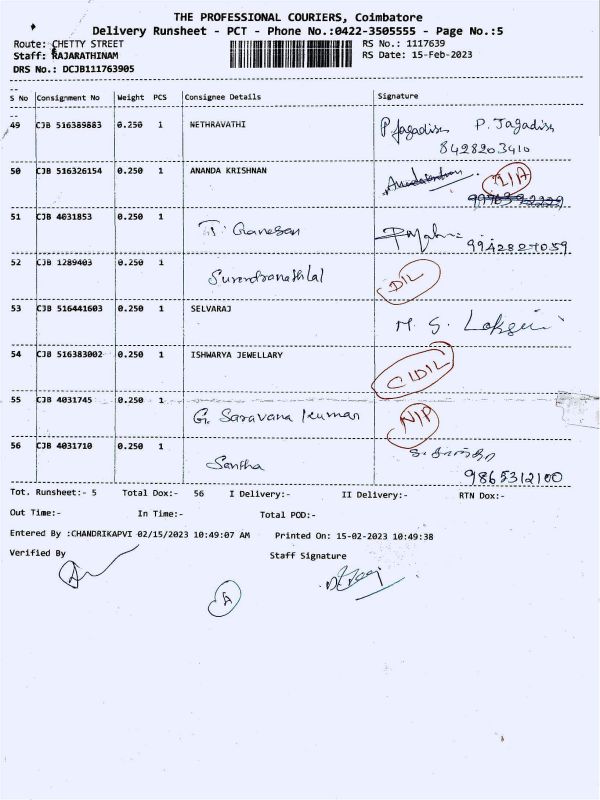 THE PROFESSIONAL COURIERS, Coimbatore
Delivery Runsheet - PCT - Phone No.:0422-3505555 - Page No.:5
Route: CHETTY STREET RS No.: 1117639
Staff: RAJARATHINAM RS Date: 15-Feb-2023
DRS No.: DCJB111763905
S No Consignment No Weight PCS Consignee Details Signature
49 CJB 516389883 0.250 1 NETHRAVATHI P Jagadish P. Jagadish
8428203410
50 CJB 516326154 0.250 1 ANANDA KRISHNAN
51 CJB 4031853 0.250 1 T. Ganesan 9942827059
52 CJB 1289403 0.250 1 Surendranathlal D/L
53 CJB 516441603 0.250 1 SELVARAJ M. S.
54 CJB 516383002 0.250 1 ISHWARYA JEWELLARY C/D/L
55 CJB 4031745 0.250 1 G. Saravana kumar N/P
56 CJB 4031710 0.250 1 Santha
9865312100
Tot. Runsheet:- 5 Total Dox:- 56 I Delivery:- II Delivery:- RTN Dox:-
Out Time:- In Time:- Total POD:-
Entered By :CHANDRIKAPVI 02/15/2023 10:49:07 AM Printed On: 15-02-2023 10:49:38
Verified By Staff Signature
A